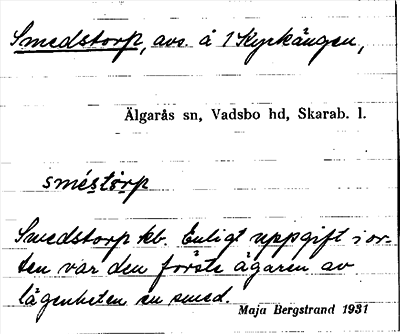 Smedstorp, avs. å 1 Kyrkängen,
Älgarås sn, Vadsbo hd, Skarab. l.
sméstòrp
Smedstorp kb. Enligt uppgift i or-
ten var den förste ägaren av
lägenheten en smed.
Maja Bergstrand 1931